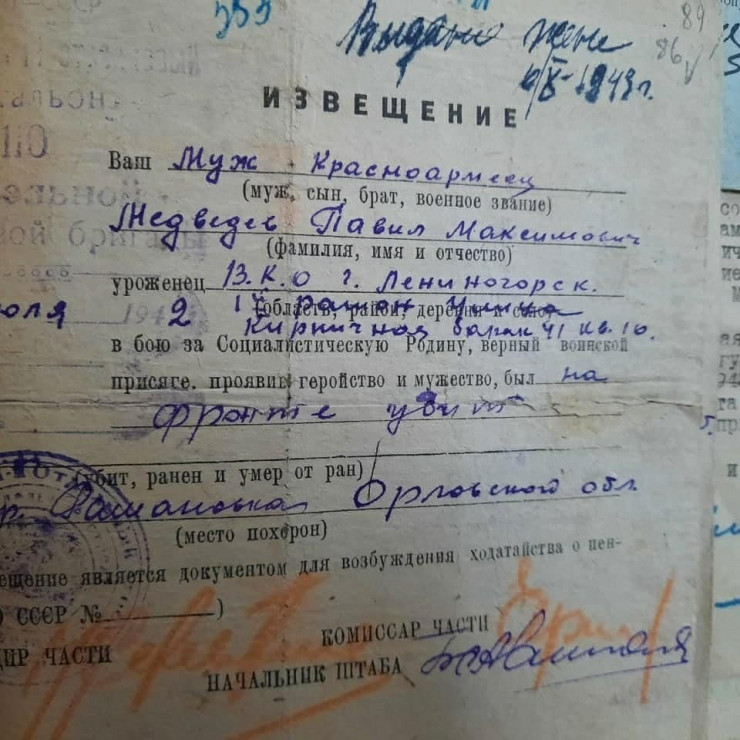 353
Выдано жене
89
86
6/X-1943г.
ИЗВЕЩЕНИЕ
Ваш Муж Красноармеец
(муж, сын, брат, военное звание)
Медведев Павил Максимович
(фамилия, имя и отчество)
уроженец В.К.О г. Лениногорск.
юля 194 2 район улица
(область, район, деревня и село)
Кирпичная барак 41 кв. 10.
в бою за Социалистическую Родину, верный воинской
присяге, проявив геройство и мужество, был на
фронте убит
(убит, ранен и умер от ран)
Орловской обл.
(место похорон)
ещение является документом для возбуждения ходатайства о пен-
О СССР № )
КОМИССАР ЧАСТИ
ИР ЧАСТИ
НАЧАЛЬНИК ШТАБА